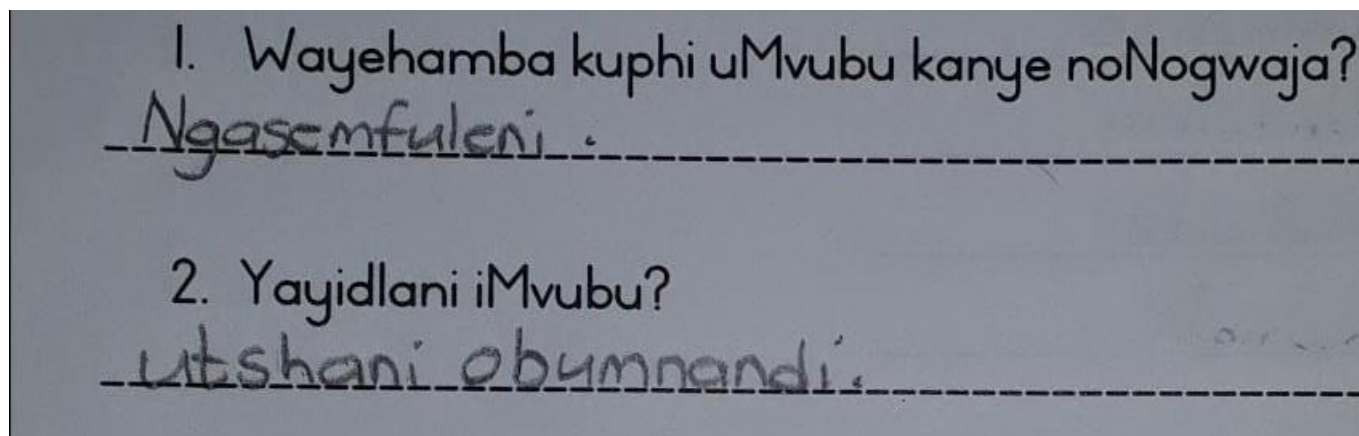 1. Wayehamba kuphi uMvubu kanye noNogwaja?
Ngasemfuleni.
2. Yayidlani iMvubu?
utshani obumnandi.